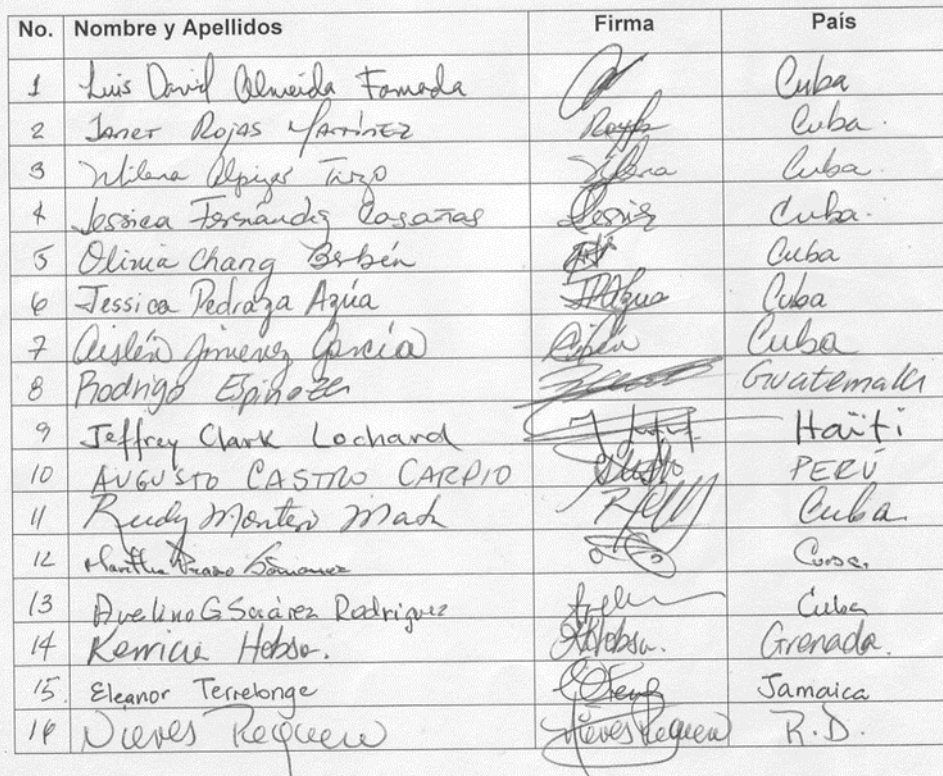 No. Nombre y Apellidos Firma País
1 Luis David Almeida Famada Cuba
2 Janet Rojas Martínez Rojas Cuba.
3 Milena Alpizar Tirzo Milena Cuba.
4 Jessica Fernández Casañas Jessie Cuba.
5 Olivia Chang Berbén Cuba
6 Jessica Pedraza Azúa JPAzua Cuba
7 Aislén Jimenez García Aislén Cuba
8 Rodrigo Espinoza Guatemala
9 Jeffrey Clark Lochard Haïti
10 AUGUSTO CASTRO CARPIO PERÚ
11 Rudy Montero Mark Cuba.
12 Martha
13 Avelino G Suárez Rodriguez Cuba
14 Hobso. Hobso. Grenada.
15. Eleanor Terrelonge Jamaica
16 Nieves Requena Nieves Requena R.D.